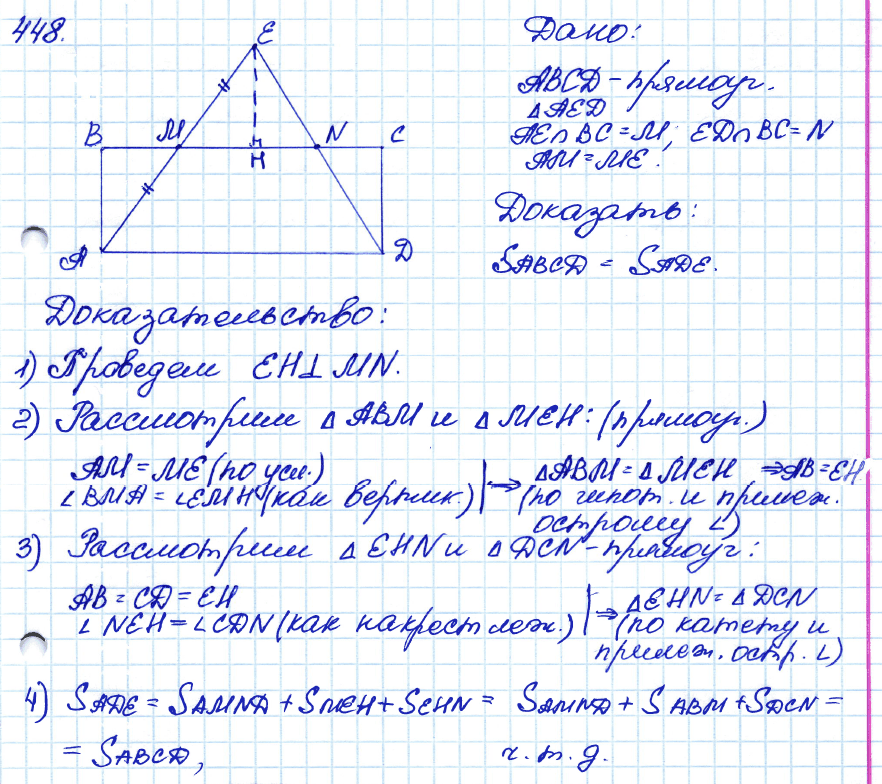 448.
E
B M H N C
A D
Дано:
ABCD - прямоуг.
△AED
AE∩BC=M; ED∩BC=N
AM=ME.
Доказать:
SABCD = SADE.
Доказательство:
1) Проведем EH⊥MN.
2) Рассмотрим △ABM и △MEH: (прямоуг.)
AM=ME (по усл.) ⇒ △ABM=△MEH ⇒AB=EH
∠BMA=∠EMH (как вертик.) (по гипот. и прилеж.
острому ∠)
3) Рассмотрим △EHN и △DCN-прямоуг:
AB=CD=EH ⇒ △EHN=△DCN
∠NEH=∠CDN (как накрест леж.) (по катету и
прилеж. остр. ∠)
4) SADE = SAMND + SMEH + SEHN = SAMND + SABM + SDCN =
= SABCD, ч.т.д.